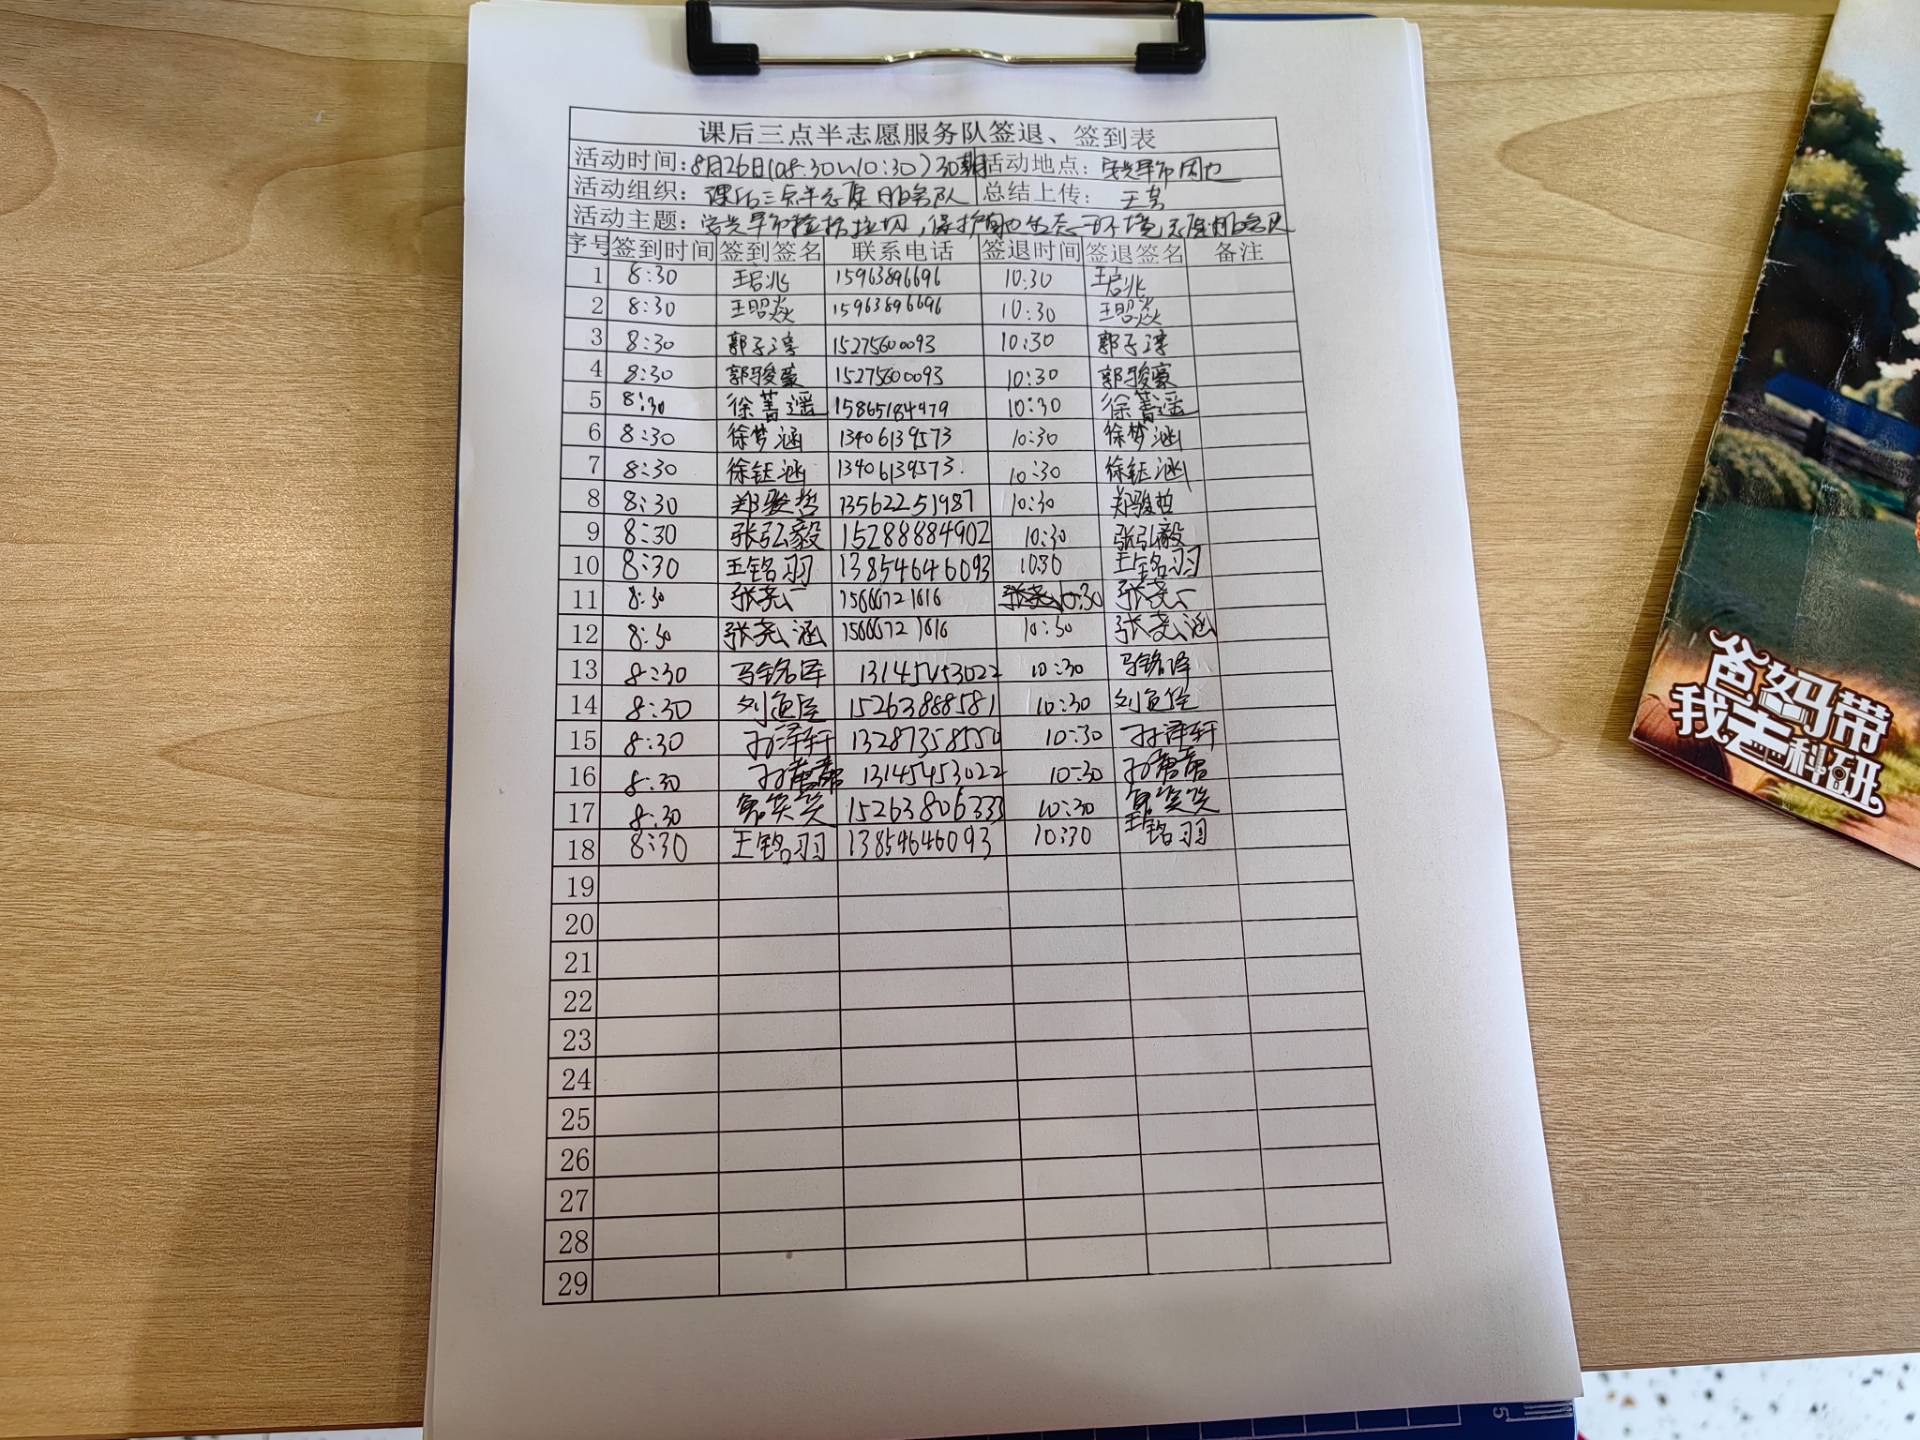 课后三点半志愿服务队签退、签到表
活动时间:8月26日(08:30~10:30)30期 活动地点:安兴早市周边
活动组织:课后三点半志愿服务队 总结上传:王芳
活动主题:早市捡拾垃圾,保护周边生态环境志愿服务队
序号 签到时间 签到签名 联系电话 签退时间 签退签名 备注
1 8:30 王启兆 15963896696 10:30 王启兆
2 8:30 王昭焱 15963896696 10:30 王昭焱
3 8:30 郭子淳 15275600093 10:30 郭子淳
4 8:30 郭骏豪 15275600093 10:30 郭骏豪
5 8:30 徐菩遥 15865184979 10:30 徐菩遥
6 8:30 徐梦涵 13406139573 10:30 徐梦涵
7 8:30 徐钰涵 13406139573. 10:30 徐钰涵
8 8:30 郑骏哲 13562251987 10:30 郑骏哲
9 8:30 张弘毅 15288884902 10:30 张弘毅
10 8:30 王铭羽 13854646093 1030 王铭羽
11 8:30 张尧 15666721616 10:30 张尧
12 8:30 张尧涵 15666721616 10:30 张尧涵
13 8:30 马铭泽 13145453022 10:30 马铭泽
14 8:30 刘 15263888581 10:30 刘
15 8:30 孙泽轩 13287358550 10:30 孙泽轩
16 8:30 孙 13145453022 10:30 孙
17 8:30 笑笑 15263806333 10:30 笑笑
18 8:30 王铭羽 13854646093 10:30 王铭羽
19
20
21
22
23
24
25
26
27
28
29
爸妈带
我去科研
5